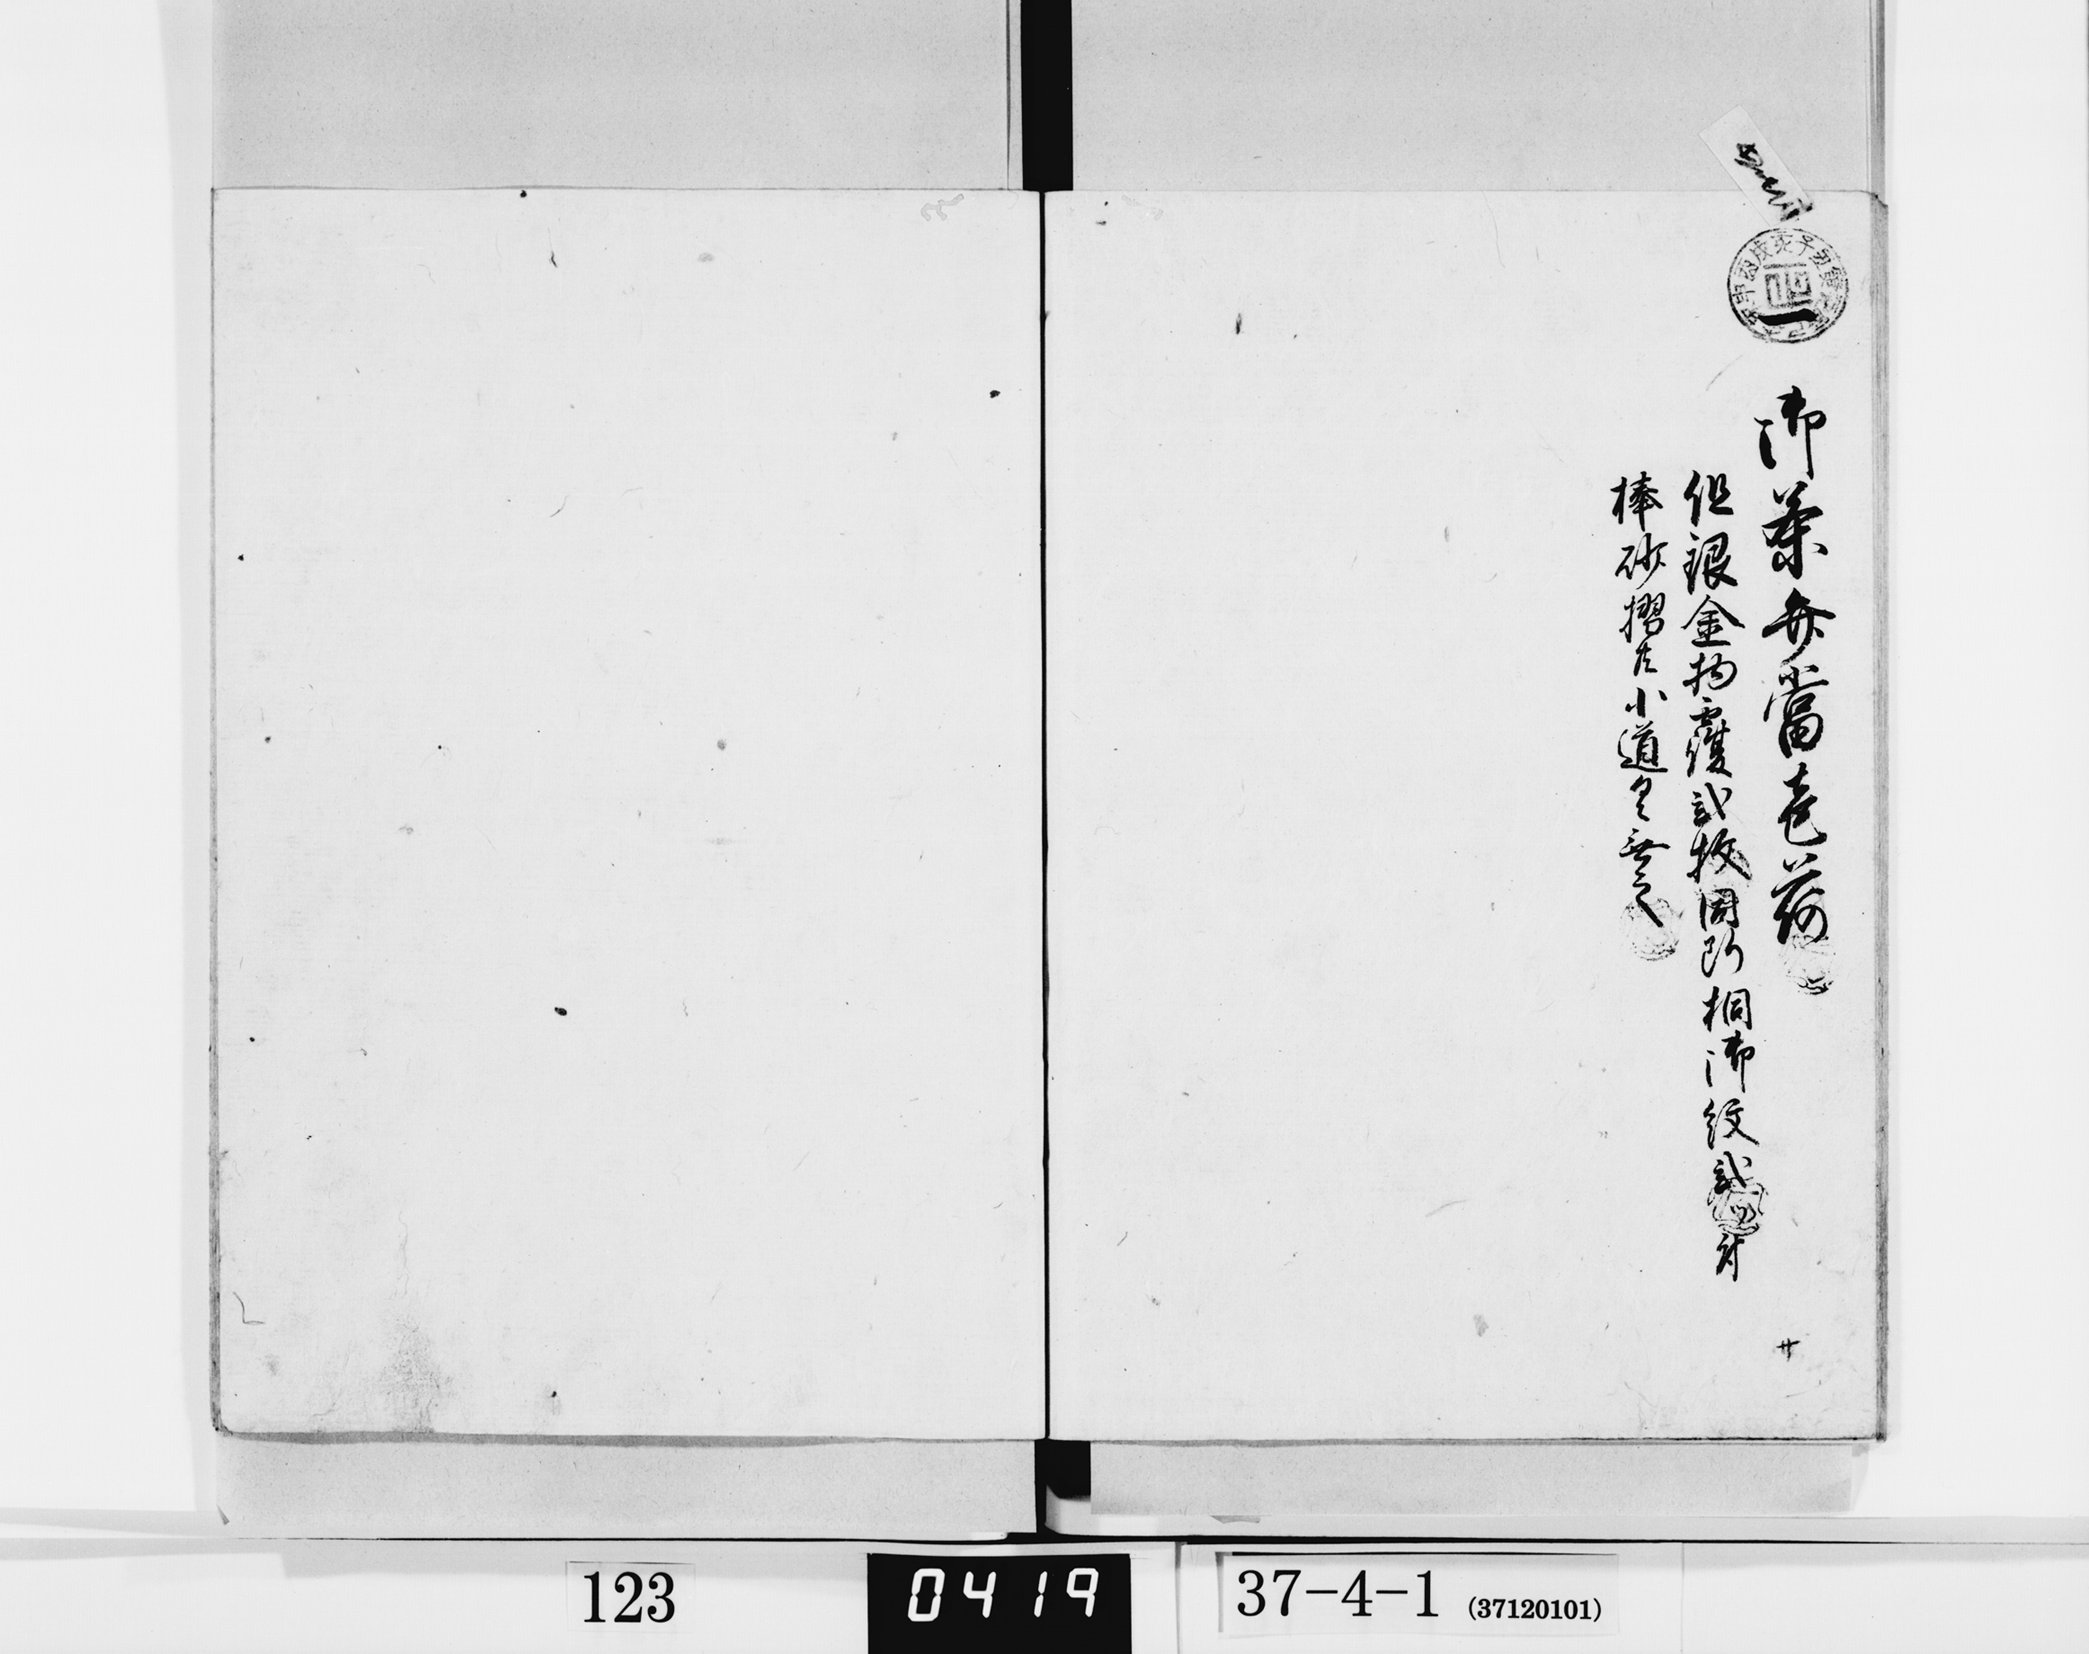 一
御茶弁當壱荷
但銀金物覆弐枚固所桐御紋弐ツ付
棒砂摺尤小道具無之
廿
123
0419
37-4-1 (37120101)